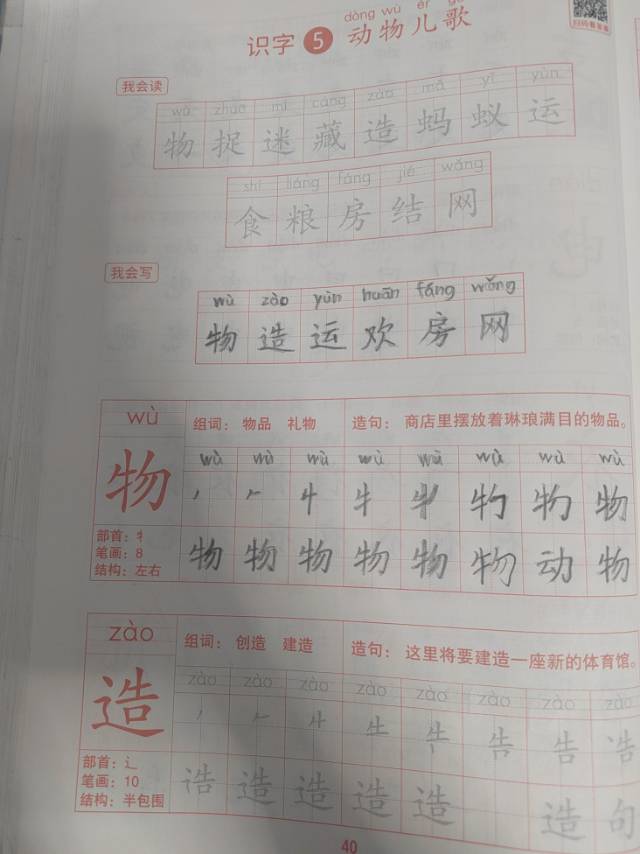 dòng wù ér gē
识字 5 动物儿歌
我会读
wù zhuō mí cáng zào mǎ yǐ yùn
物 捉 迷 藏 造 蚂 蚁 运
shí liáng fáng jié wǎng
食 粮 房 结 网
我会写
wù zào yùn huān fáng wǎng
物 造 运 欢 房 网
wù
组词: 物品 礼物 造句: 商店里摆放着琳琅满目的物品。
物
wù wù wù wù wù wù wù wù
物 物 物
部首: 牜
笔画: 8
结构: 左右
物 物 物 物 物 物 动 物
zào
组词: 创造 建造 造句: 这里将要建造一座新的体育馆。
造
zào zào zào zào zào zào zào zào
告 告
部首: 辶
笔画: 10
结构: 半包围
造 造 造 造 造 句
40